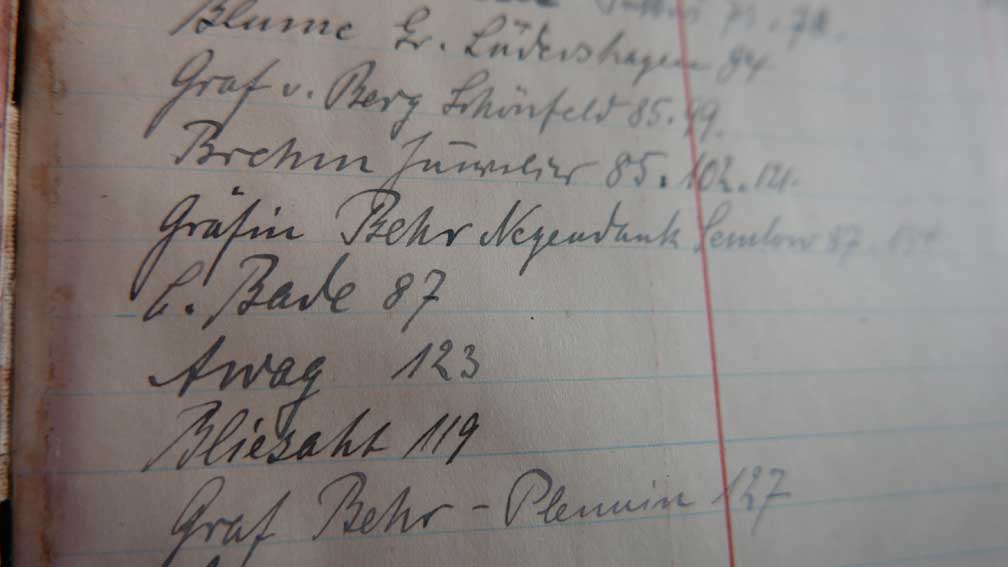 71.
Blume Gr. Lüdershagen 84
Graf v. Berg Schönfeld 85.99.
Brehm Juwelier 85.102.121.
Gräfin Behr Negendank Semlow 87.
C. Bade 87
Awag 123
Bliesaht 119
Graf Behr - Plennin 127